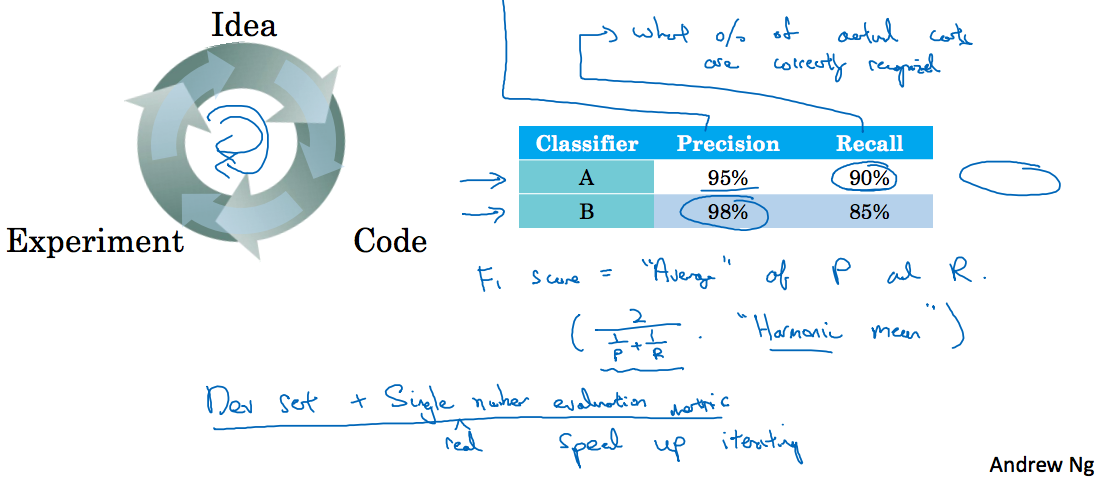 Idea
Experiment
Code
What % of actual cats
are correctly recognized
Classifier Precision Recall
A 95% 90%
B 98% 85%
F₁ score = "Average" of P and R.
( 2 / (1/P + 1/R) . "Harmonic mean" )
Dev set + Single number evaluation metric
real speed up iterating
Andrew Ng